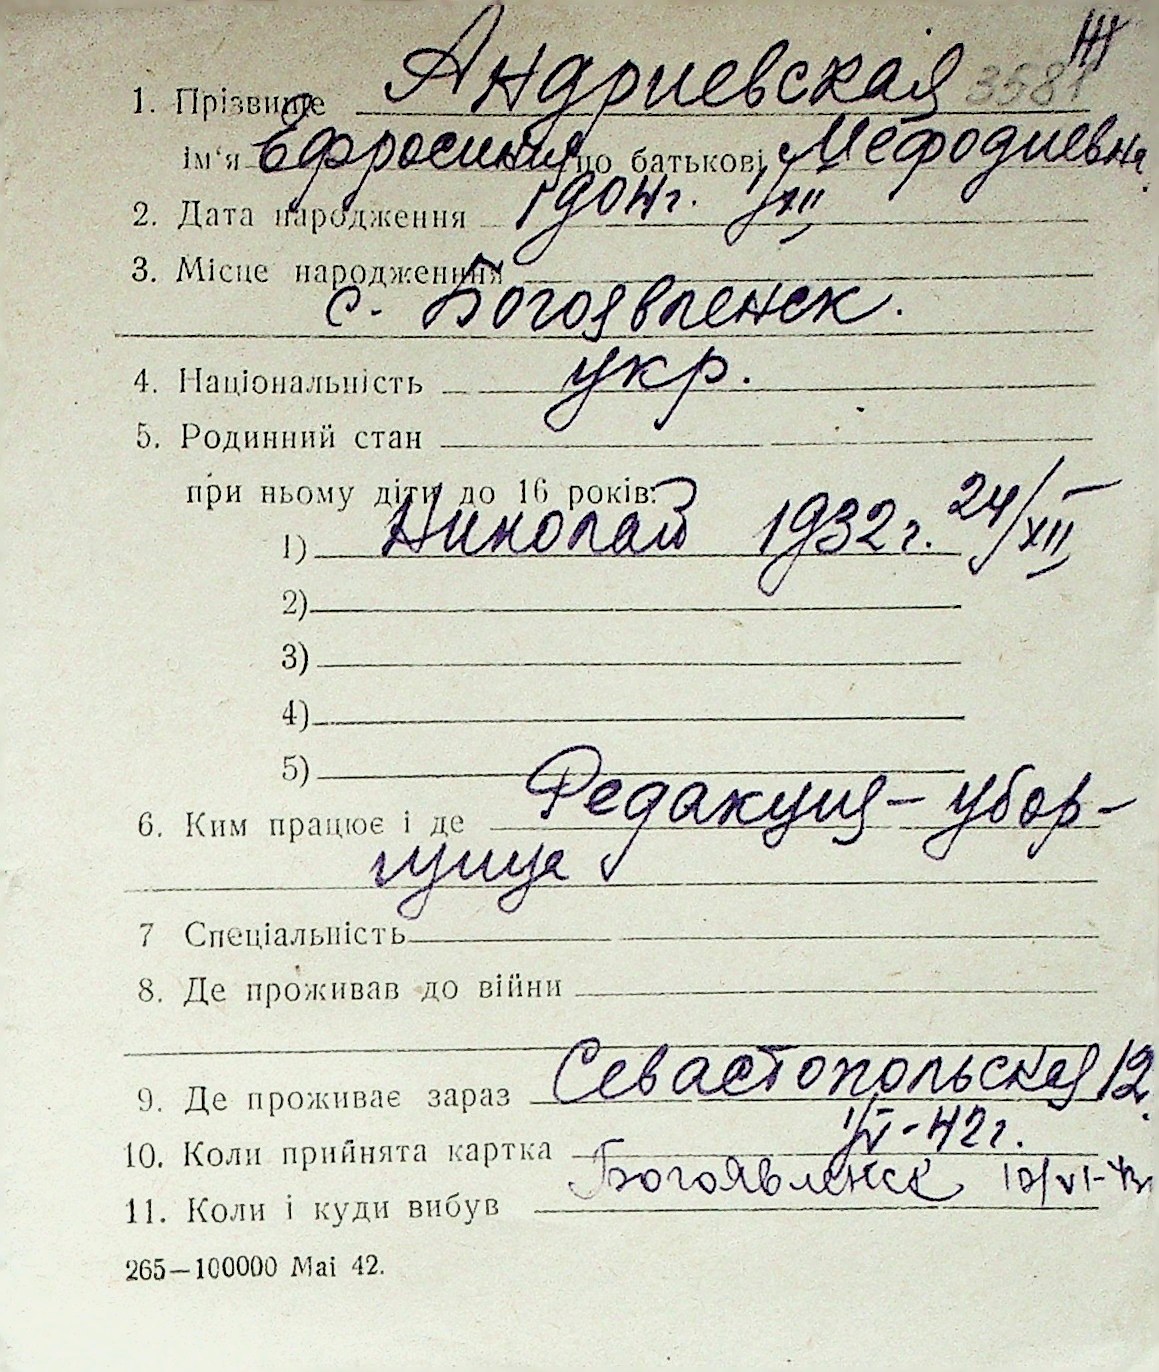 1. Прізвище Андриевская 3581
ім'я Ефросиния по батькові Мефодиевна
2. Дата народження 1904 г. 1/XII
3. Місце народженння
с. Богоявленск.
4. Національність укр.
5. Родинний стан
при ньому діти до 16 років:
1) Николай 1932 г. 24/XII
2)
3)
4)
5)
6. Ким працює і де Редакция – убор-
щица
7 Спеціальність
8. Де проживав до війни
9. Де проживає зараз Севастопольская 12.
10. Коли прийнята картка 1/V-42 г.
11. Коли і куди вибув Богоявленск 10/VI-
265—100000 Маі 42.